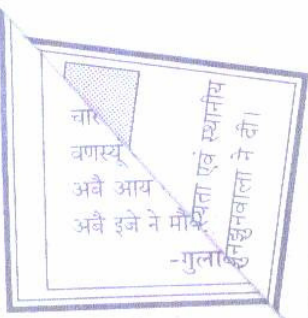 चार
वणस्यूं
अबै आय
अबै इजे ने मौ
-गुला
्यता एवं स्थानीय
झुनझुनवाला ने दी।